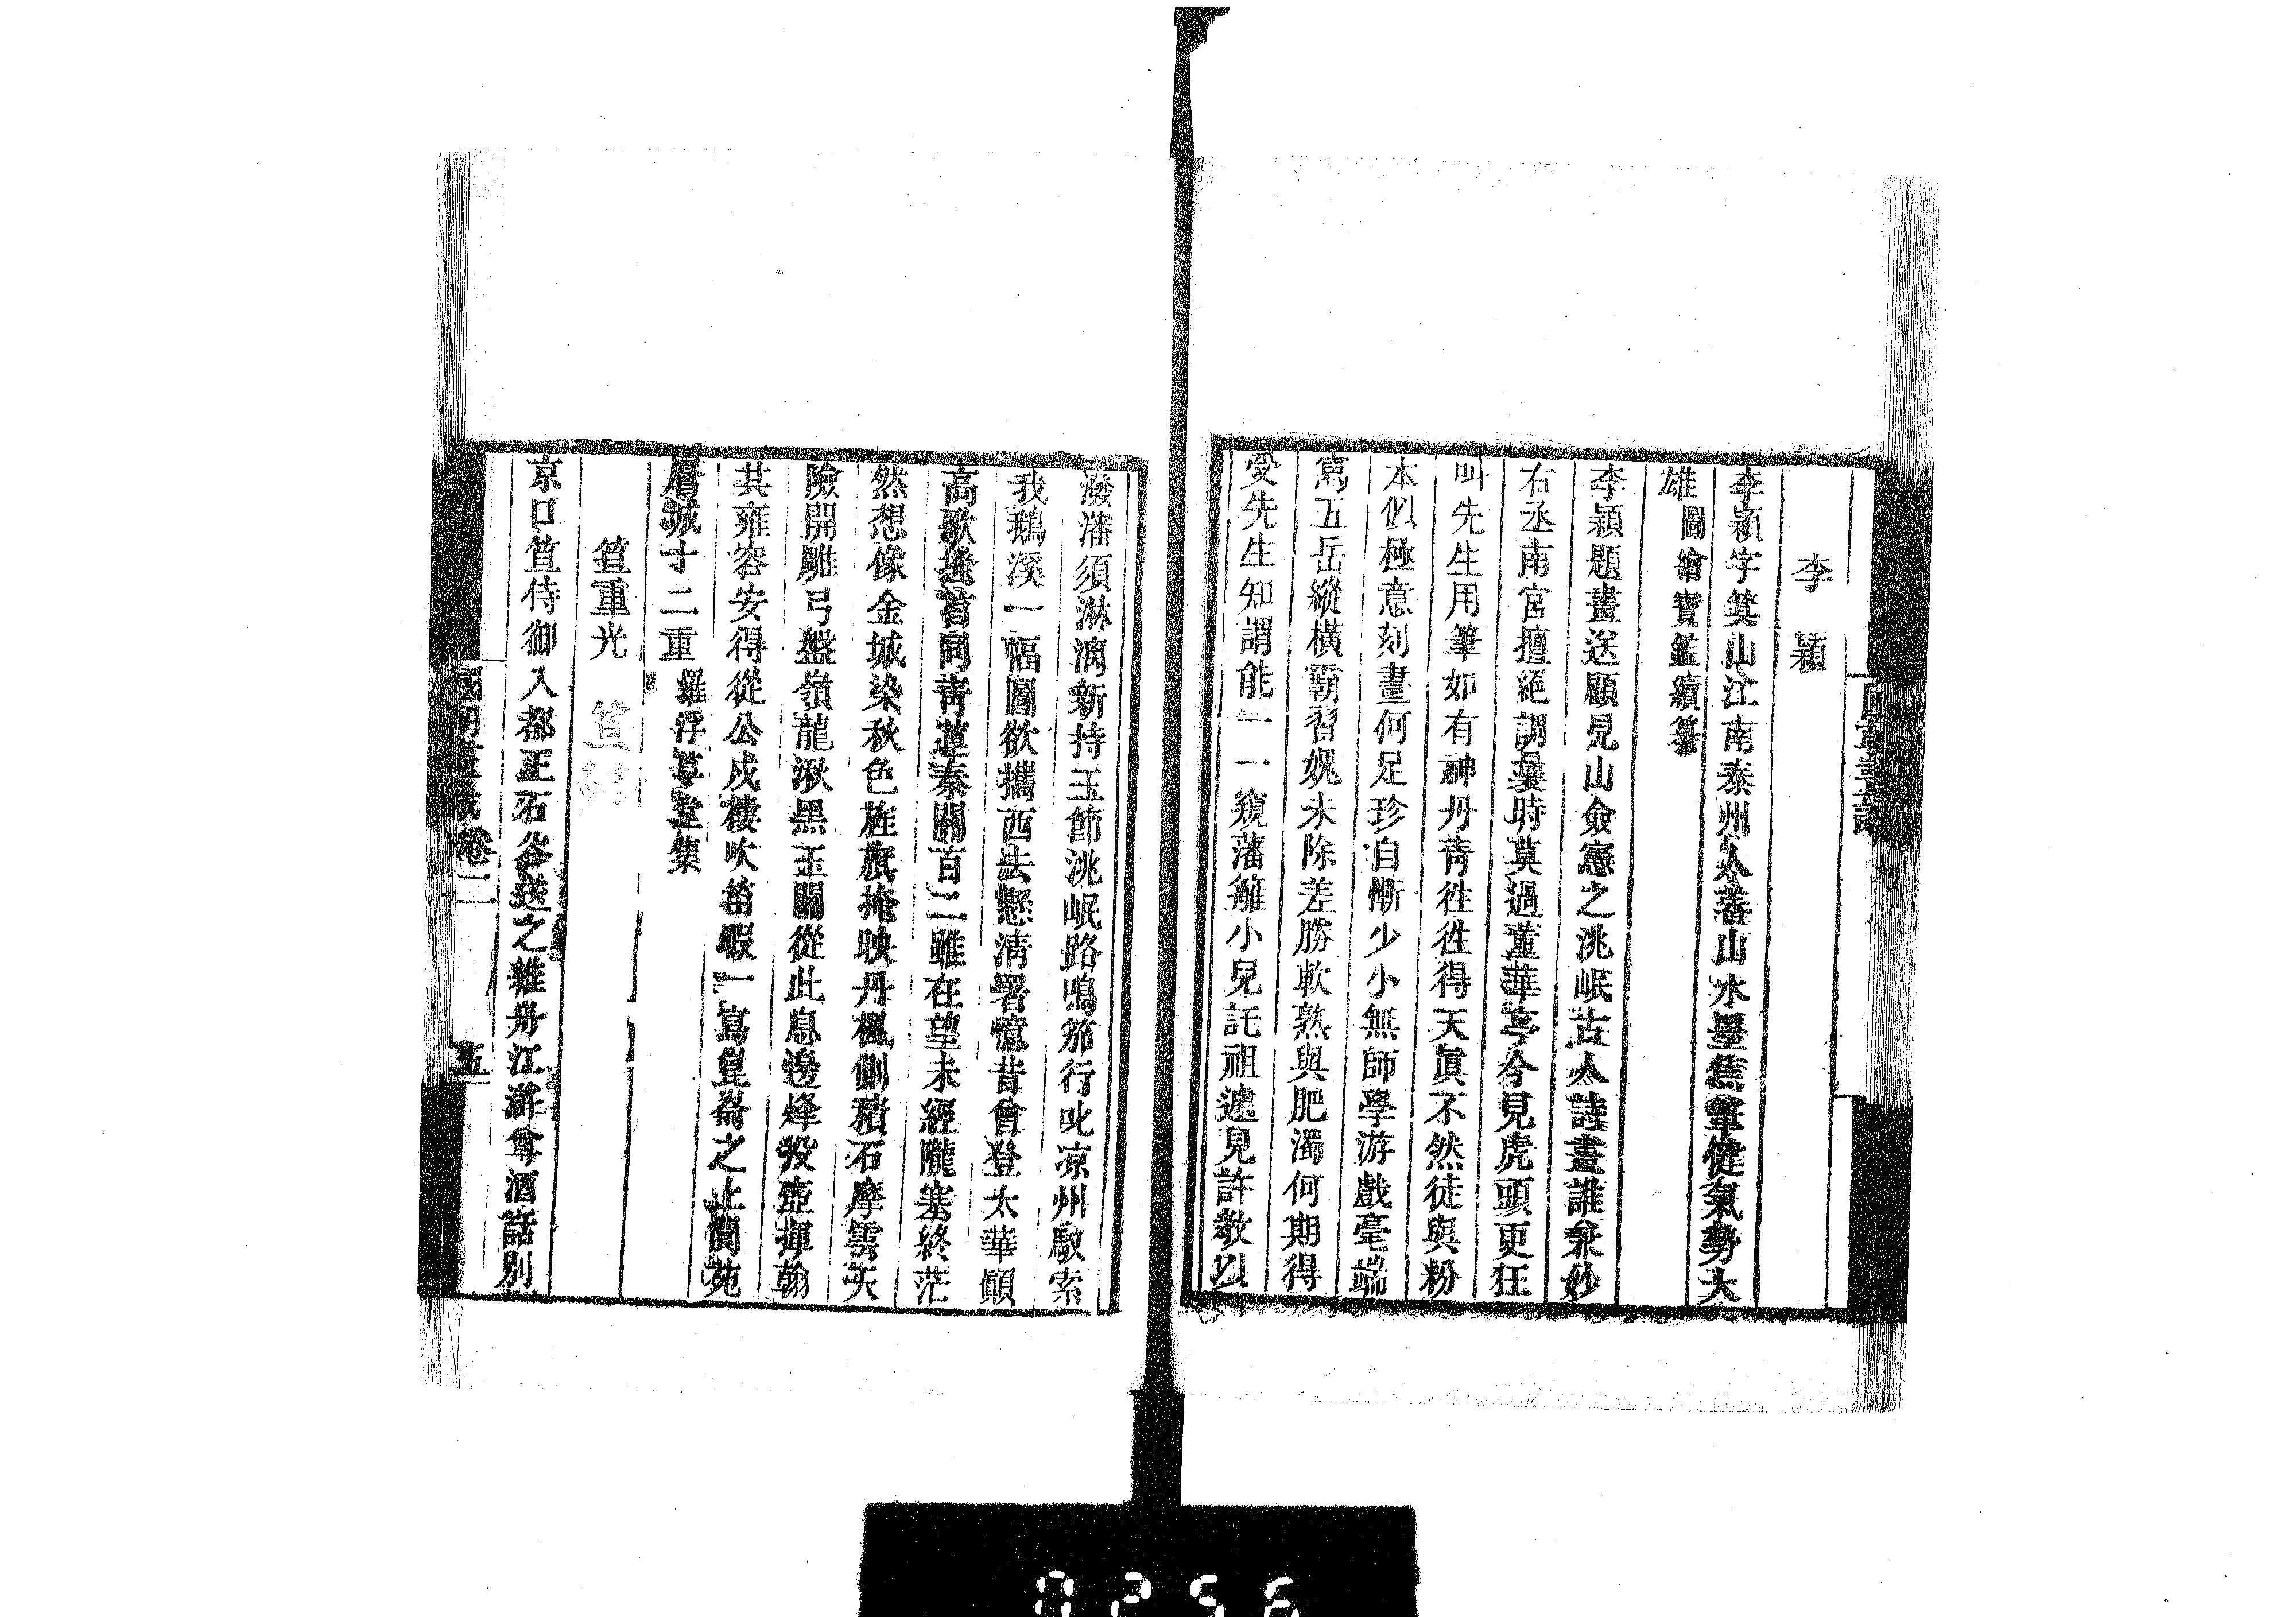 李穎
李穎字箕山江南泰州人善山水墨焦筆健氣勢大
雄圖繪寶鑑續纂
李穎題畫送顧見山僉憲之洮岷古人詩畫誰兼妙
右丞南宮擅絕調曩時莫過董華亭今見虎頭更狂
叫先生用筆如有神丹青徃徃得天眞不然徒與粉
本似極意刻畫何足珍自慚少小無師學游戲毫端
寫五岳縱橫霸習媿未除差勝軟熟與肥濁何期得
受先生知謂能一一窺藩籬小兒託祖遽見許教以
潑瀋須淋漓新持玉節洮岷路鳴笳行叱凉州馭索
我鵝溪一幅圖欲攜西去懸清署憶昔曾登太華顚
高歌搔首同青蓮秦關百二雖在望未經隴塞終茫
然想像金城染秋色旌旗掩映丹楓側積石摩雲天
險開雕弓盤嶺龍湫黑玉關從此息邊烽投壺揮翰
其雍容安得從公戍樓吹笛暇一寫崑崙之山閬苑
層城十二重羅浮草堂集
笪重光
京口笪侍御入都王石谷送之維舟江滸尊酒話別
國朝畫識卷二
五
0256